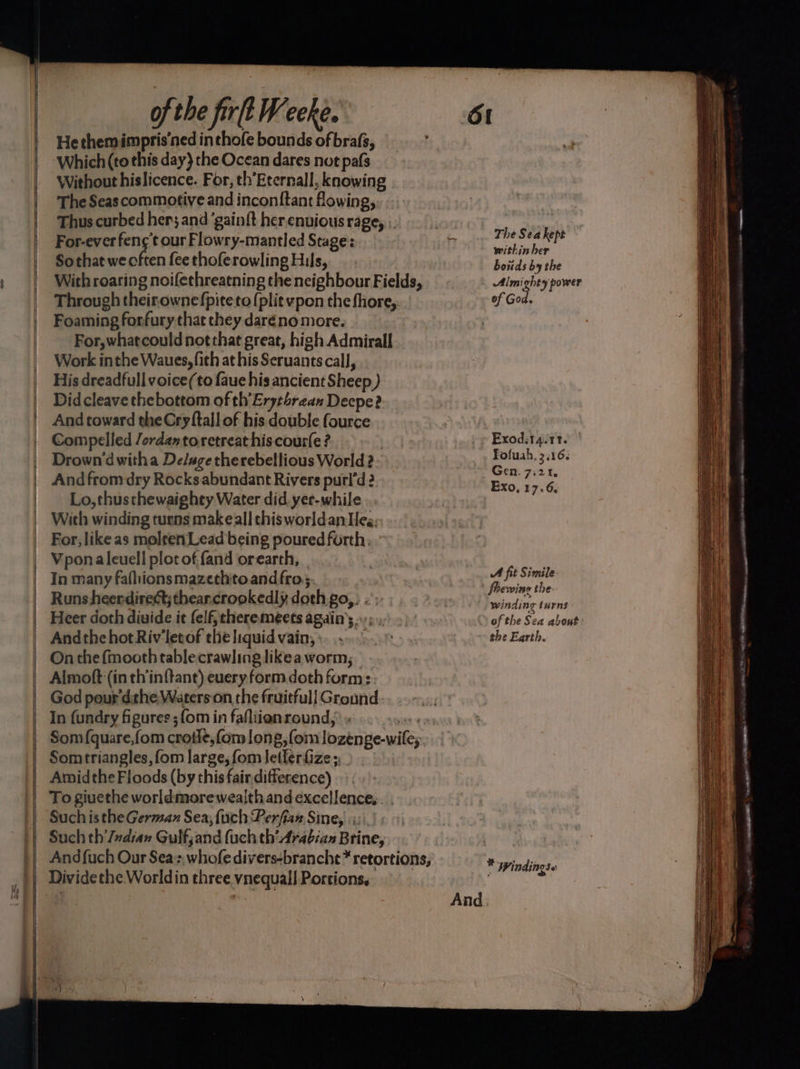 of the firſt Weeke.
61
He them impris'ned in thoſe bounds of braſs,
Which (to this day) the Ocean dares not paſs
Without his licence. For, th'Eternall, knowing
The Seas commotive and inconſtant flowing,
Thus curbed her; and 'gainſt her enuious rage,
For-ever fenç't our Flowry-mantled Stage:
So that we often ſee thoſe rowling Hils,
With roaring noiſe threatning the neighbour Fields,
Through their owne ſpite to ſplit vpon the ſhore,
Foaming for fury that they dare no more.
The Sea kept
within her
boũds by the
Almighty power
of God.
For, what could not that great, high Admirall
Work in the Waues, ſith at his Seruants call,
His dreadfull voice (to ſaue his ancient Sheep)
Did cleave the bottom of th'Erythræan Deepe?
And toward the Cryſtall of his double ſource
Compelled Iordan to retreat his courſe?
Drown'd with a Deluge the rebellious World?
And from dry Rocks abundant Rivers purl'd?
Exod. 14. 11.
Ioſuah, 3. 16.
Gen. 7. 21.
Exo, 17. 6.
Lo, thus the waighty Water did yer-while
With winding turns make all this world an Ile.
For, like as molten Lead being poured forth
Vpon a leuell plot of ſand or earth,
In many faſhions mazeth to and fro;
Runs heer direct; thear crookedly doth go,
Heer doth diuide it ſelf, there meets again;
And the hot Riv'let of the liquid vain,
On the ſmooth table crawling like a worm,
Almoſt (in th'inſtant) euery form doth form:
God pour'd the Waters on the fruitfull Ground
In ſundry figures; ſom in faſhion round,
Som ſquare, ſom croſſe, ſom long, ſom lozenge-wiſe,
Som triangles, ſom large, ſom leſſer ſize;
Amid the Floods (by this fair difference)
To giue the world more wealth and excellence.
Such is the German Sea, ſuch Perſian Sine,
Such th'Indian Gulf, and ſuch th'Arabian Brine,
And ſuch Our Sea: whoſe divers-brancht * retortions,
Divide the World in three vnequall Portions.
A fit Simile
ſhewing the
winding turns
of the Sea about
the Earth.
* Windings.
And